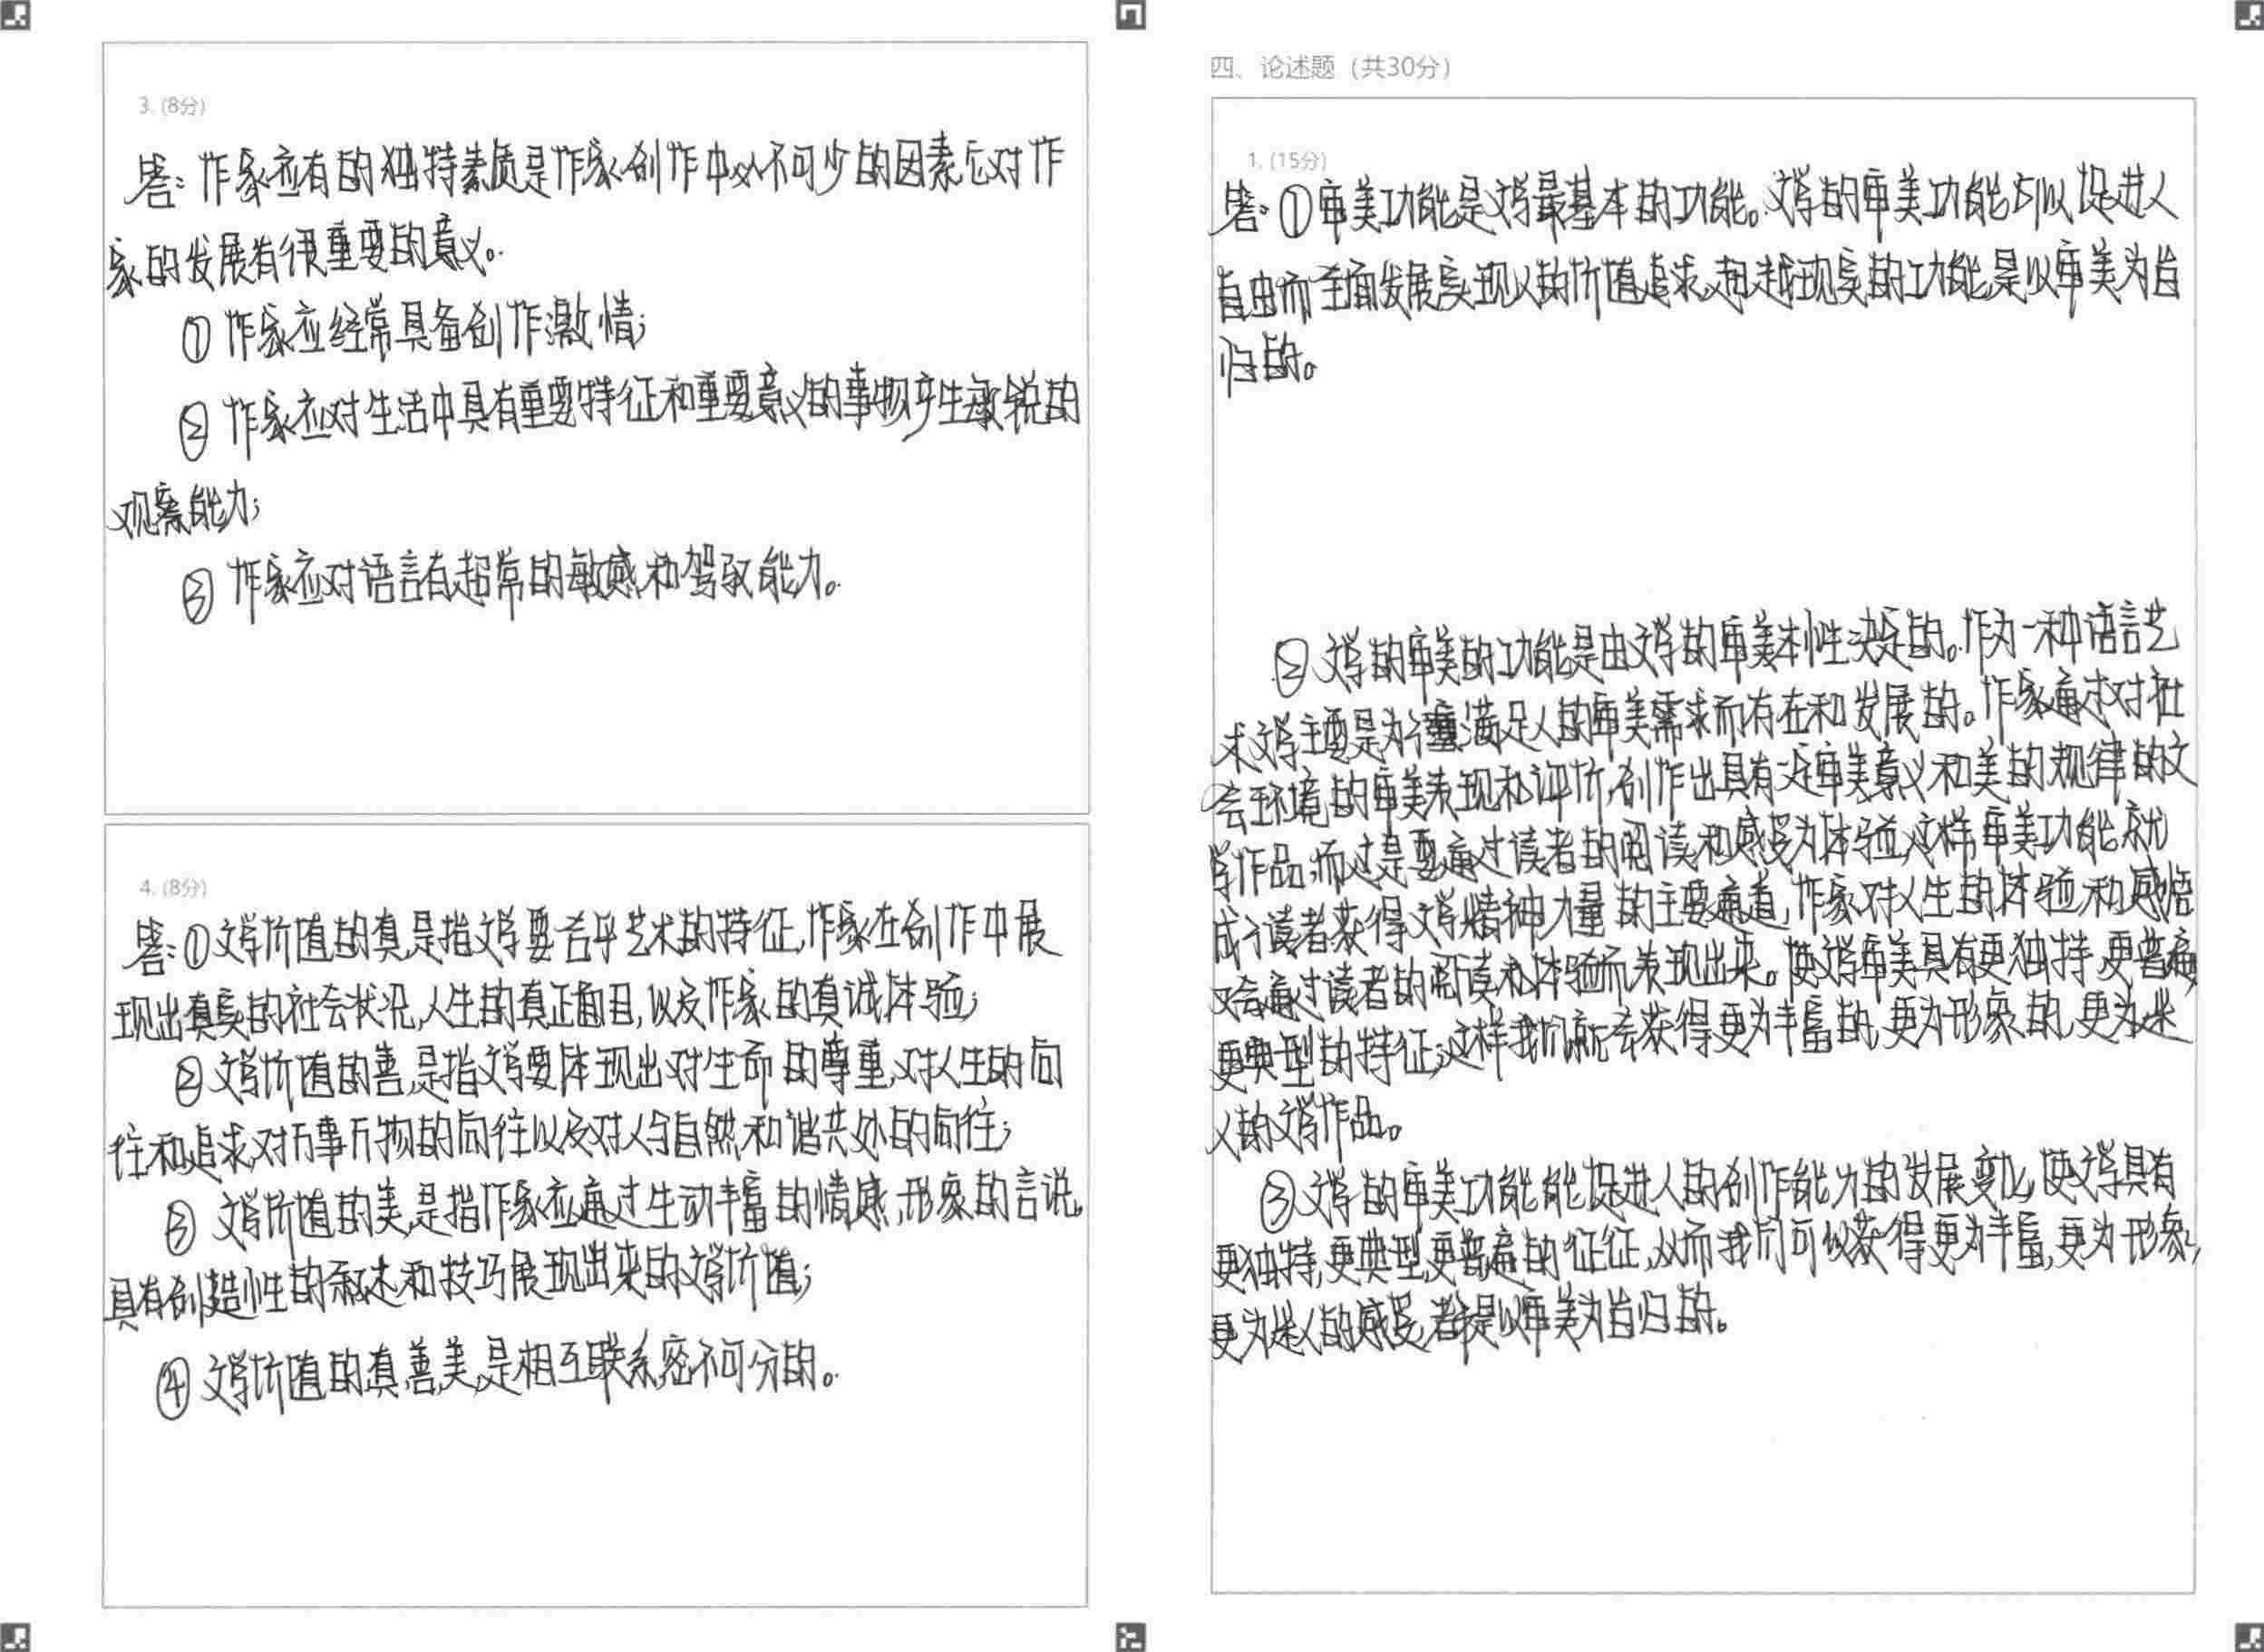 3. (8分)
答：作家应有的独特素质是作家创作中必不可少的因素它对作
家的发展有很重要的意义。
① 作家应经常具备创作激情；
② 作家应对生活中具有重要特征和重要意义的事物产生敏锐的
观察能力；
③ 作家应对语言有超常的敏感和驾驭能力。
4. (8分)
答：①文学价值的真,是指文学要合乎艺术的特征,作家在创作中展
现出真实的社会状况,人生的真正面目,以及作家的真诚体验；
②文学价值的善,是指文学要体现出对生命的尊重,对人生的向
往和追求,对万事万物的向往以及对人与自然和谐共处的向往；
③ 文学价值的美,是指作家应通过生动丰富的情感,形象的言说,
具有创造性的叙述和技巧展现出来的文学价值；
④文学价值的真,善,美,是相互联系,密不可分的。
四、论述题（共30分）
1. (15分)
答：①审美功能是文学最基本的功能。文学的审美功能可以促进人
自由而全面发展,实现人的价值追求,超越现实的功能,是以审美为旨
归的。
②文学的审美的功能是由文学的审美本性决定的。作为一种语言艺
术文学主要是为满足人的审美需求而有在和发展的。作家通过对社
会环境的审美表现和评价,创作出具有一定审美意义和美的规律的文
学作品,而这是要通过读者的阅读和感受为体验,这样审美功能就
成了读者获得文学精神力量的主要通道,作家对人生的体验和感悟
又会通过读者的阅读和体验而表现出来。使文学审美具有更独特,更普遍,
更典型的特征；这样我们就会获得更为丰富的,更为形象的,更为迷
人的文学作品。
③文学的审美功能能促进人的创作能力的发展变化,使文学具有
更独特,更典型,更普遍的征征,从而我们可以获得更为丰富,更为形象,
更为迷人的感受,都是以审美为旨归的。